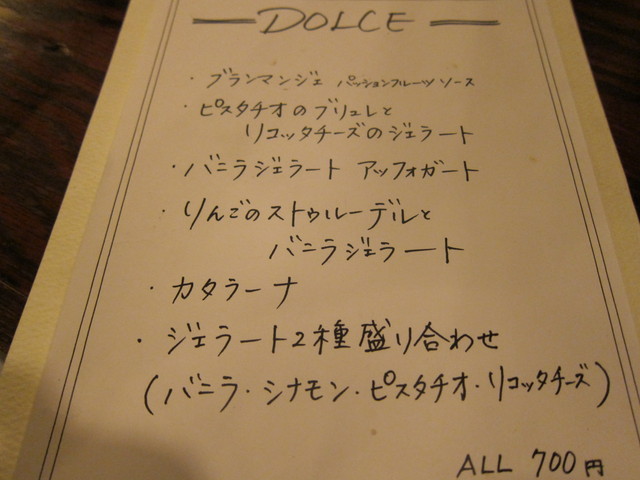 DOLCE
・ブランマンジェ パッションフルーツ ソース
・ピスタチオのブリュレと
リコッタチーズのジェラート
・バニラジェラート アッフォガート
・りんごのストゥルーデルと
バニラジェラート
・カタラーナ
・ジェラート2種盛り合わせ
(バニラ・シナモン・ピスタチオ・リコッタチーズ)
ALL 700円